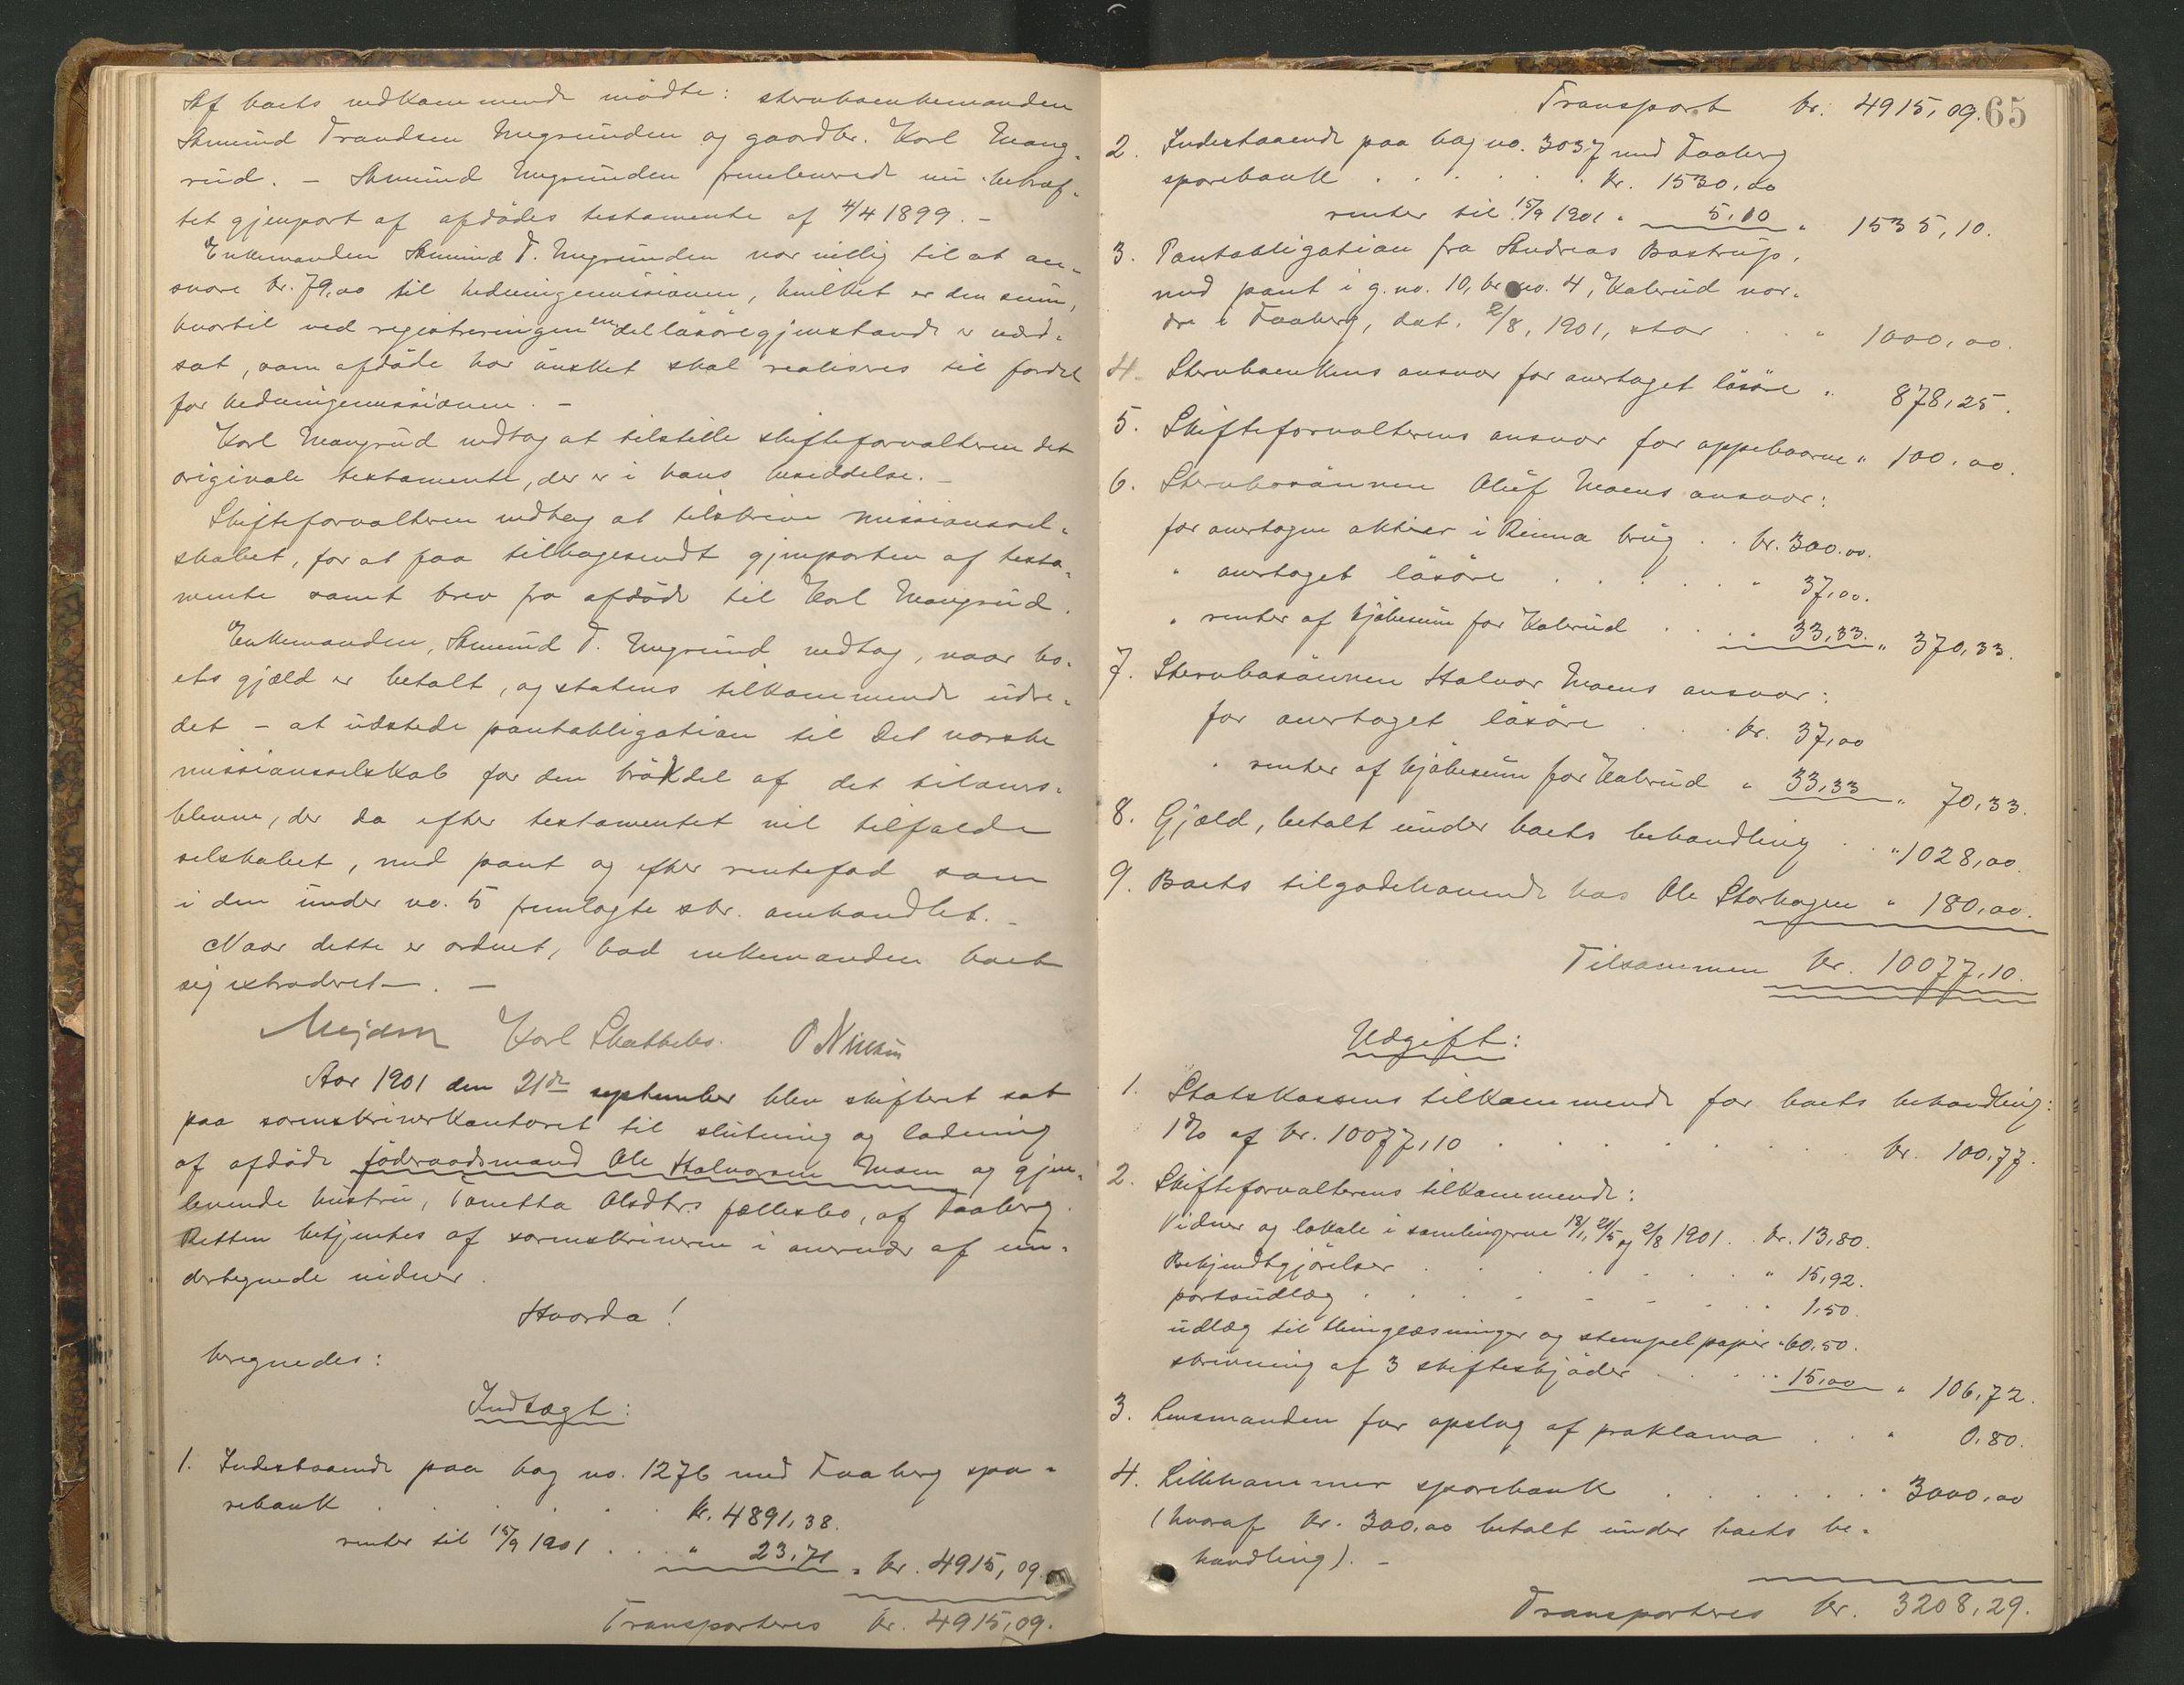 Af boets vedkommende mødte: stervboenkemanden
Amund Trandsen Mugrunden og gaardbr. Karl Maug-
rud. – Amund Mugrunden fremleverede nu bekræf-
tet gjenpart af afdødes testamente af 4/4 1899. –
Enkemanden Amund T. Mugrunden var villig til at an-
svare kr. 79,00 til hedningemissionen, hvilket er den sum,
hvortil ved registreringen en del løsøregjenstande er vurd-
sat, som afdøde har ønsket skal realiseres til fordel
for hedningemissionen. –
Karl Maugrud vedtog at tilstille skifteforvalteren det
originale testamente, der er i hans besiddelse. –
Skifteforvalteren vedtog at tilskrive missionssel-
skabet, for at faa tilbagesendt gjenparten af testa-
mente samt brev fra afdøde til Karl Maugrud.
Enkemanden, Amund T. Mugrund vedtog, naar bo-
ets gjæld er betalt, og statens tilkommende udre-
det – at udstede pantobligation til Det norske
missionsselskab for den brøkdel af det tilovers-
blevne, der da efter testamentet vil tilfalde
selskabet, med pant og efter rentefod som
i den under no. 5 fremlagte skr. omhandlet. –
Naar dette er ordnet, bad enkemanden boet
sig extraderet. –
Mejdell Karl Skattebo. O Nilsen
Aar 1901 den 21de september blev skifteret sat
paa sorenskriverkontoret til slutning og lodning
af afdøde føderaadsmand Ole Halvorsen Moen og gjen-
levende hustru, Tonetta Olsdtrs fællesbo, af Faaberg.
Retten betjentes af sorenskriveren i overvær af un-
dertegnede vidner.
Hvorda!
beregnedes:
Indtægt:
1. Indestaaende paa bog no. 1276 med Faaberg spa-
rebank . . . . . kr. 4891,38.
renter til 15/9 1901 . . . " 23,71 = kr. 4915,09.
Transporteres kr. 4915,09.
65
Transport kr. 4915,09.
2. Indestaaende paa bog no. 3037 med Faaberg
sparebank . . . . . . kr. 1530,00
renter til 15/9 1901 " 5,10 " 1535,10.
3. Pantobligation fra Andreas Bastrup,
med pant i g. no. 10, br. no. 4, Kalrud nor-
dre i Faaberg, dat. 2/8, 1901, stor . . " 1000,00.
4. Stervboenkens ansvar for overtaget løsøre " 878,25.
5. Skifteforvalterens ansvar for oppebaarne " 100,00.
6. Stervbosønnen Oluf Moens ansvar:
for overtagne aktier i Reima brug . . kr. 300.00.
" overtaget løsøre . . . . . " 37,00.
" renter af kjøbesum for Kalrud . . . . 33,33. " 370,33.
7. Stervbosønnen Halvor Moens ansvar:
for overtaget løsøre . . . kr. 37,00
" renter af kjøbesum for Kalrud " 33,33 " 70,33.
8. Gjæld, betalt under boets behandling . . " 1028,00.
9. Boets tilgodehavende hos Ole Storhagen " 180,00.
Tilsammen kr. 10077,10.
Udgift:
1. Statskassens tilkommende for boets behandling:
1% af kr. 10077,10 . . . . . . kr. 100,77.
2. Skifteforvalterens tilkommende:
Vidner og lokale i samlingerne 18/1, 21/5 og 2/8 1901 . . kr. 13,80.
Bekjendtgjørelser . . . . . . " 15,92.
portoudlæg . . . . . . . " 1,50.
udlæg til thinglæsninger og stempelpapir " 60,50.
skrivning af 3 skifteskjøder . . . . . 15,00 " 106,72.
3. Lensmanden for opslag af proklama . . " 0,80.
4. Lillehammer sparebank . . . . . . " 3000,00
(hvoraf kr. 300,00 betalt under boets be-
handling). –
Transporteres kr. 3208,29.